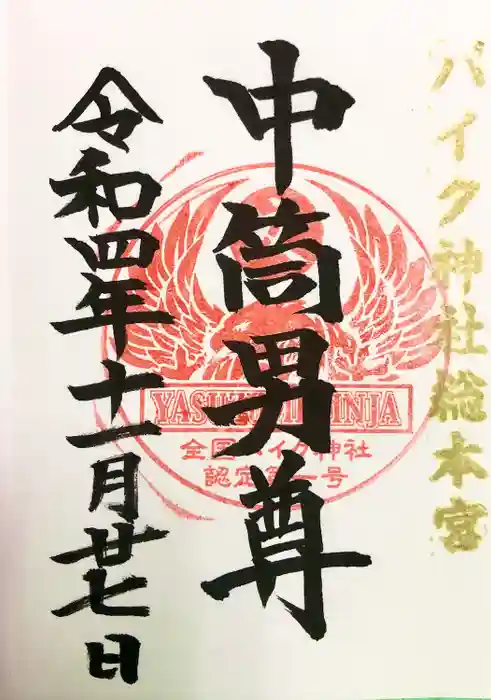 バイク神社総本宮
中筒男尊
YASUZUMI JINJA
全国バイク神社
認定第一号
令和四年十一月廿七日